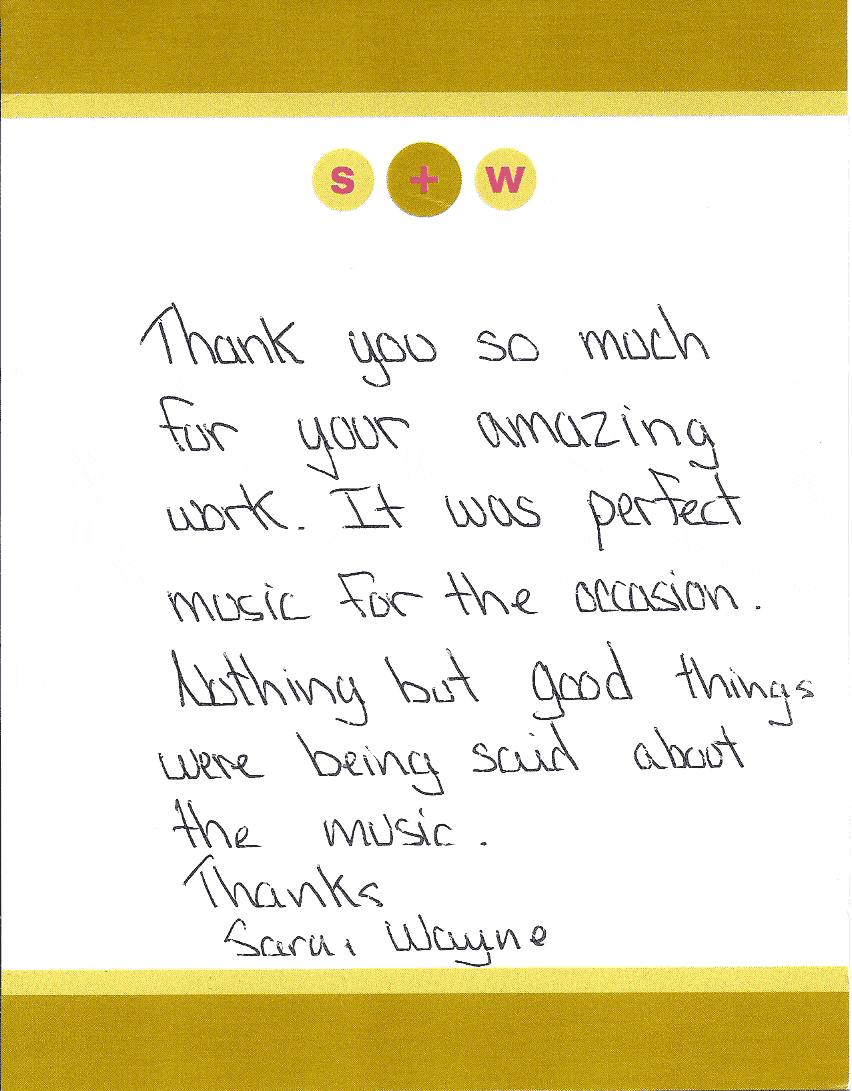 S + W
Thank you so much
for your amazing
work. It was perfect
music for the occasion.
Nothing but good things
were being said about
the music.
Thanks
Sarai Wayne